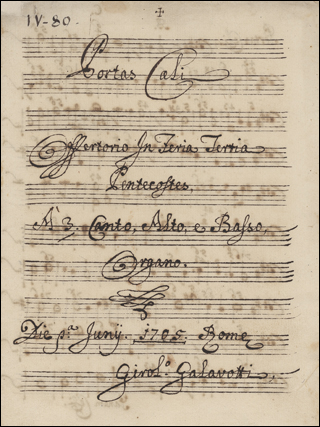 IV-80.
Portas Cæli
Offertorio In Feria Tertia
Pentecostes.
A' 3. Canto, Alto, e Basso,
Organo.
Die p.ª Junij. 1705. Romę
Girol.º Galavotti.